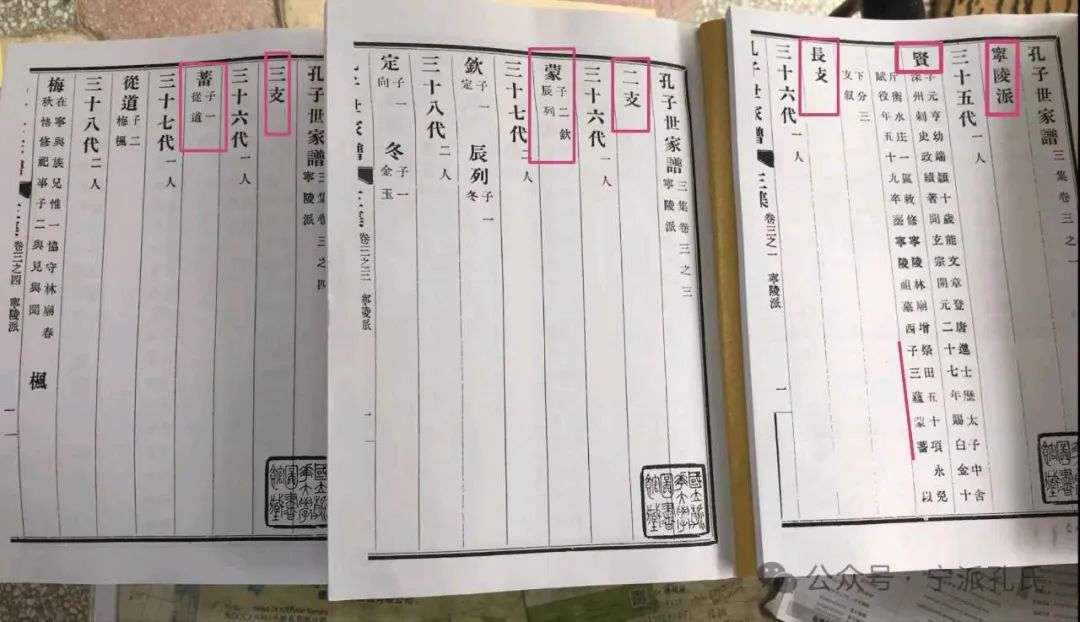 孔子世家譜 三集卷三之一
寧陵派
三十五代 一人
賢 子元亨幼端穎十歲能文章登唐進士歷太子中舍
深州刺史政績著聞玄宗開元二十七年賜白金十
斤衡水庄一區敕修寧陵林廟增祭田五十項永免
賦役年五十九卒葬寧陵祖墓西子三蘊蒙蓄以
下分三
支叙
長支
三十六代 一人
子世家譜 三集 卷三之一 寧陵派 一
孔子世家譜 三集卷三之三
寧陵派
二支
三十六代 一人
蒙 子二欽
辰列
三十七代 二人
欽 子一
定
辰列 子一
冬
三十八代 二人
定 子一
向
冬 子一
金玉
子世家譜 卷三之三 寧陵派 一
孔子世家譜 三集卷三之四
寧陵派
三支
三十六代 一人
蓄 子一
從道
三十七代 一人
從道 子二
梅楓
三十八代 二人
梅 在寧與族兄惟一協守林廟春
秋恪修祀事子二與見與聞
楓
卷三之四 寧陵派 一
公众号 · 宁派孔氏